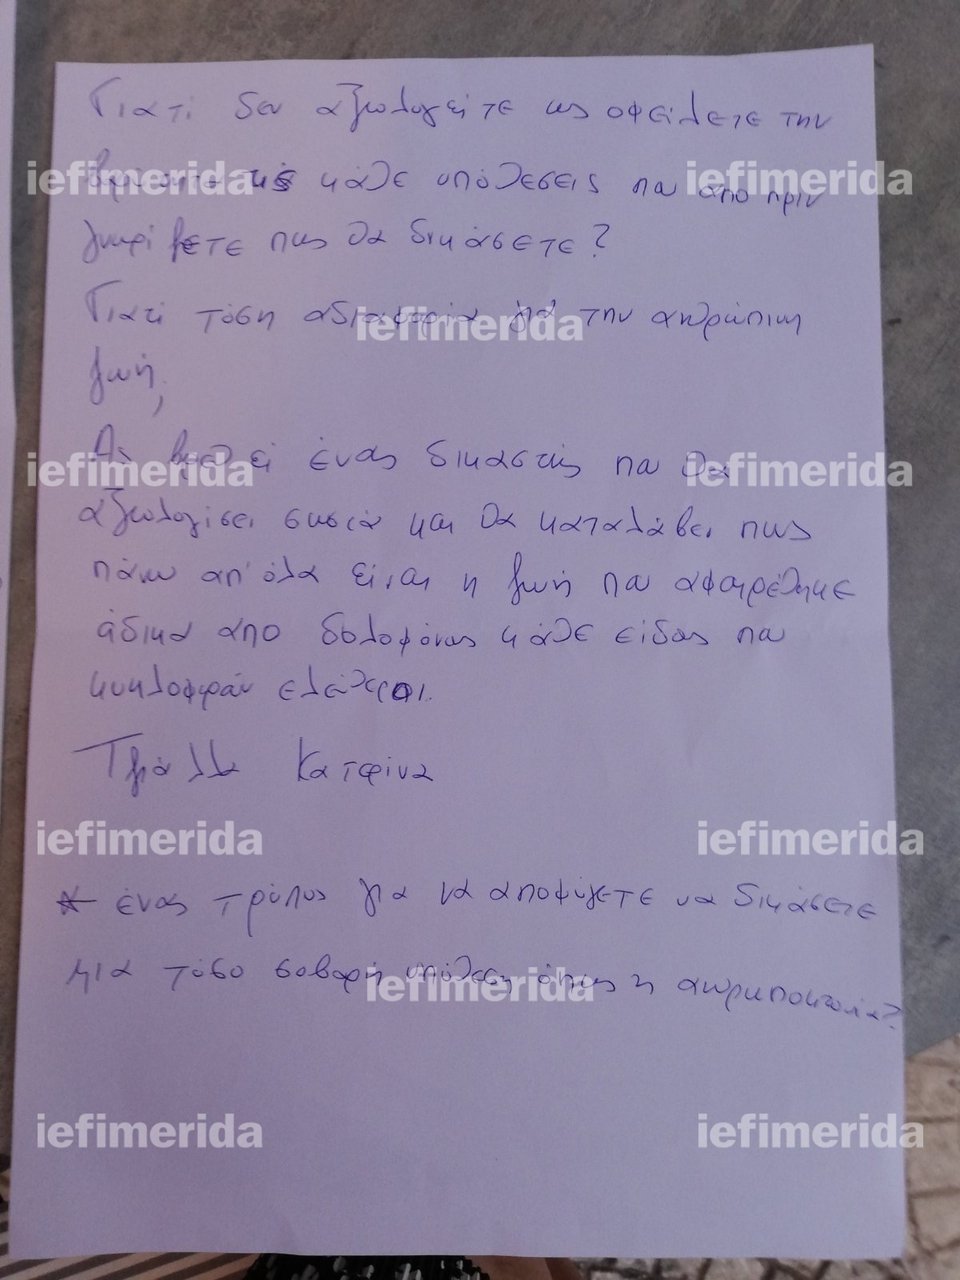 Γιατί δεν αξιολογείτε ως οφείλετε την
iefimerida iefimerida
κάθε υπόθεσεις που απο πριν
γνωρίζετε πως θα δικάσετε?
Γιατί τόση αδιαφορία για την ανθρώπινη
iefimerida
ζωή;
Ας βρεθεί ένας δικαστής που θα
iefimerida iefimerida
αξιολογίσει σωστά και θα καταλάβει πως
πάνω απ' όλα είναι η ζωή που αφαιρέθηκε
άδικα απο δολοφόνους κάθε είδους που
κυκλοφορούν ελεύθεροι.
Κατερίνα
iefimerida iefimerida
* ένας τρόπος για να αποφύγετε να δικάσετε
μια τόσο σοβαρή υπόθεση όπως η ανθρωποκτονία?
iefimerida
iefimerida iefimerida